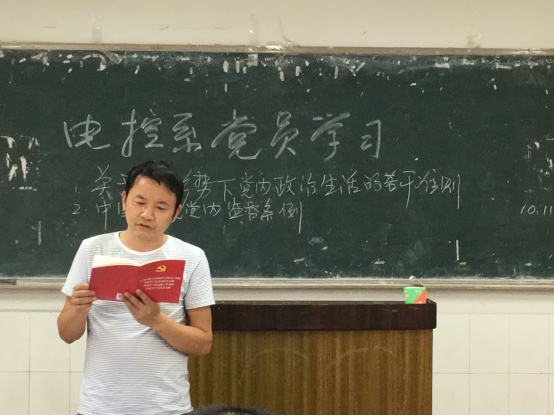 电控系党员学习
1. 关 势下党内政治生活的若干准则
2. 中国 党内监督条例
10.11